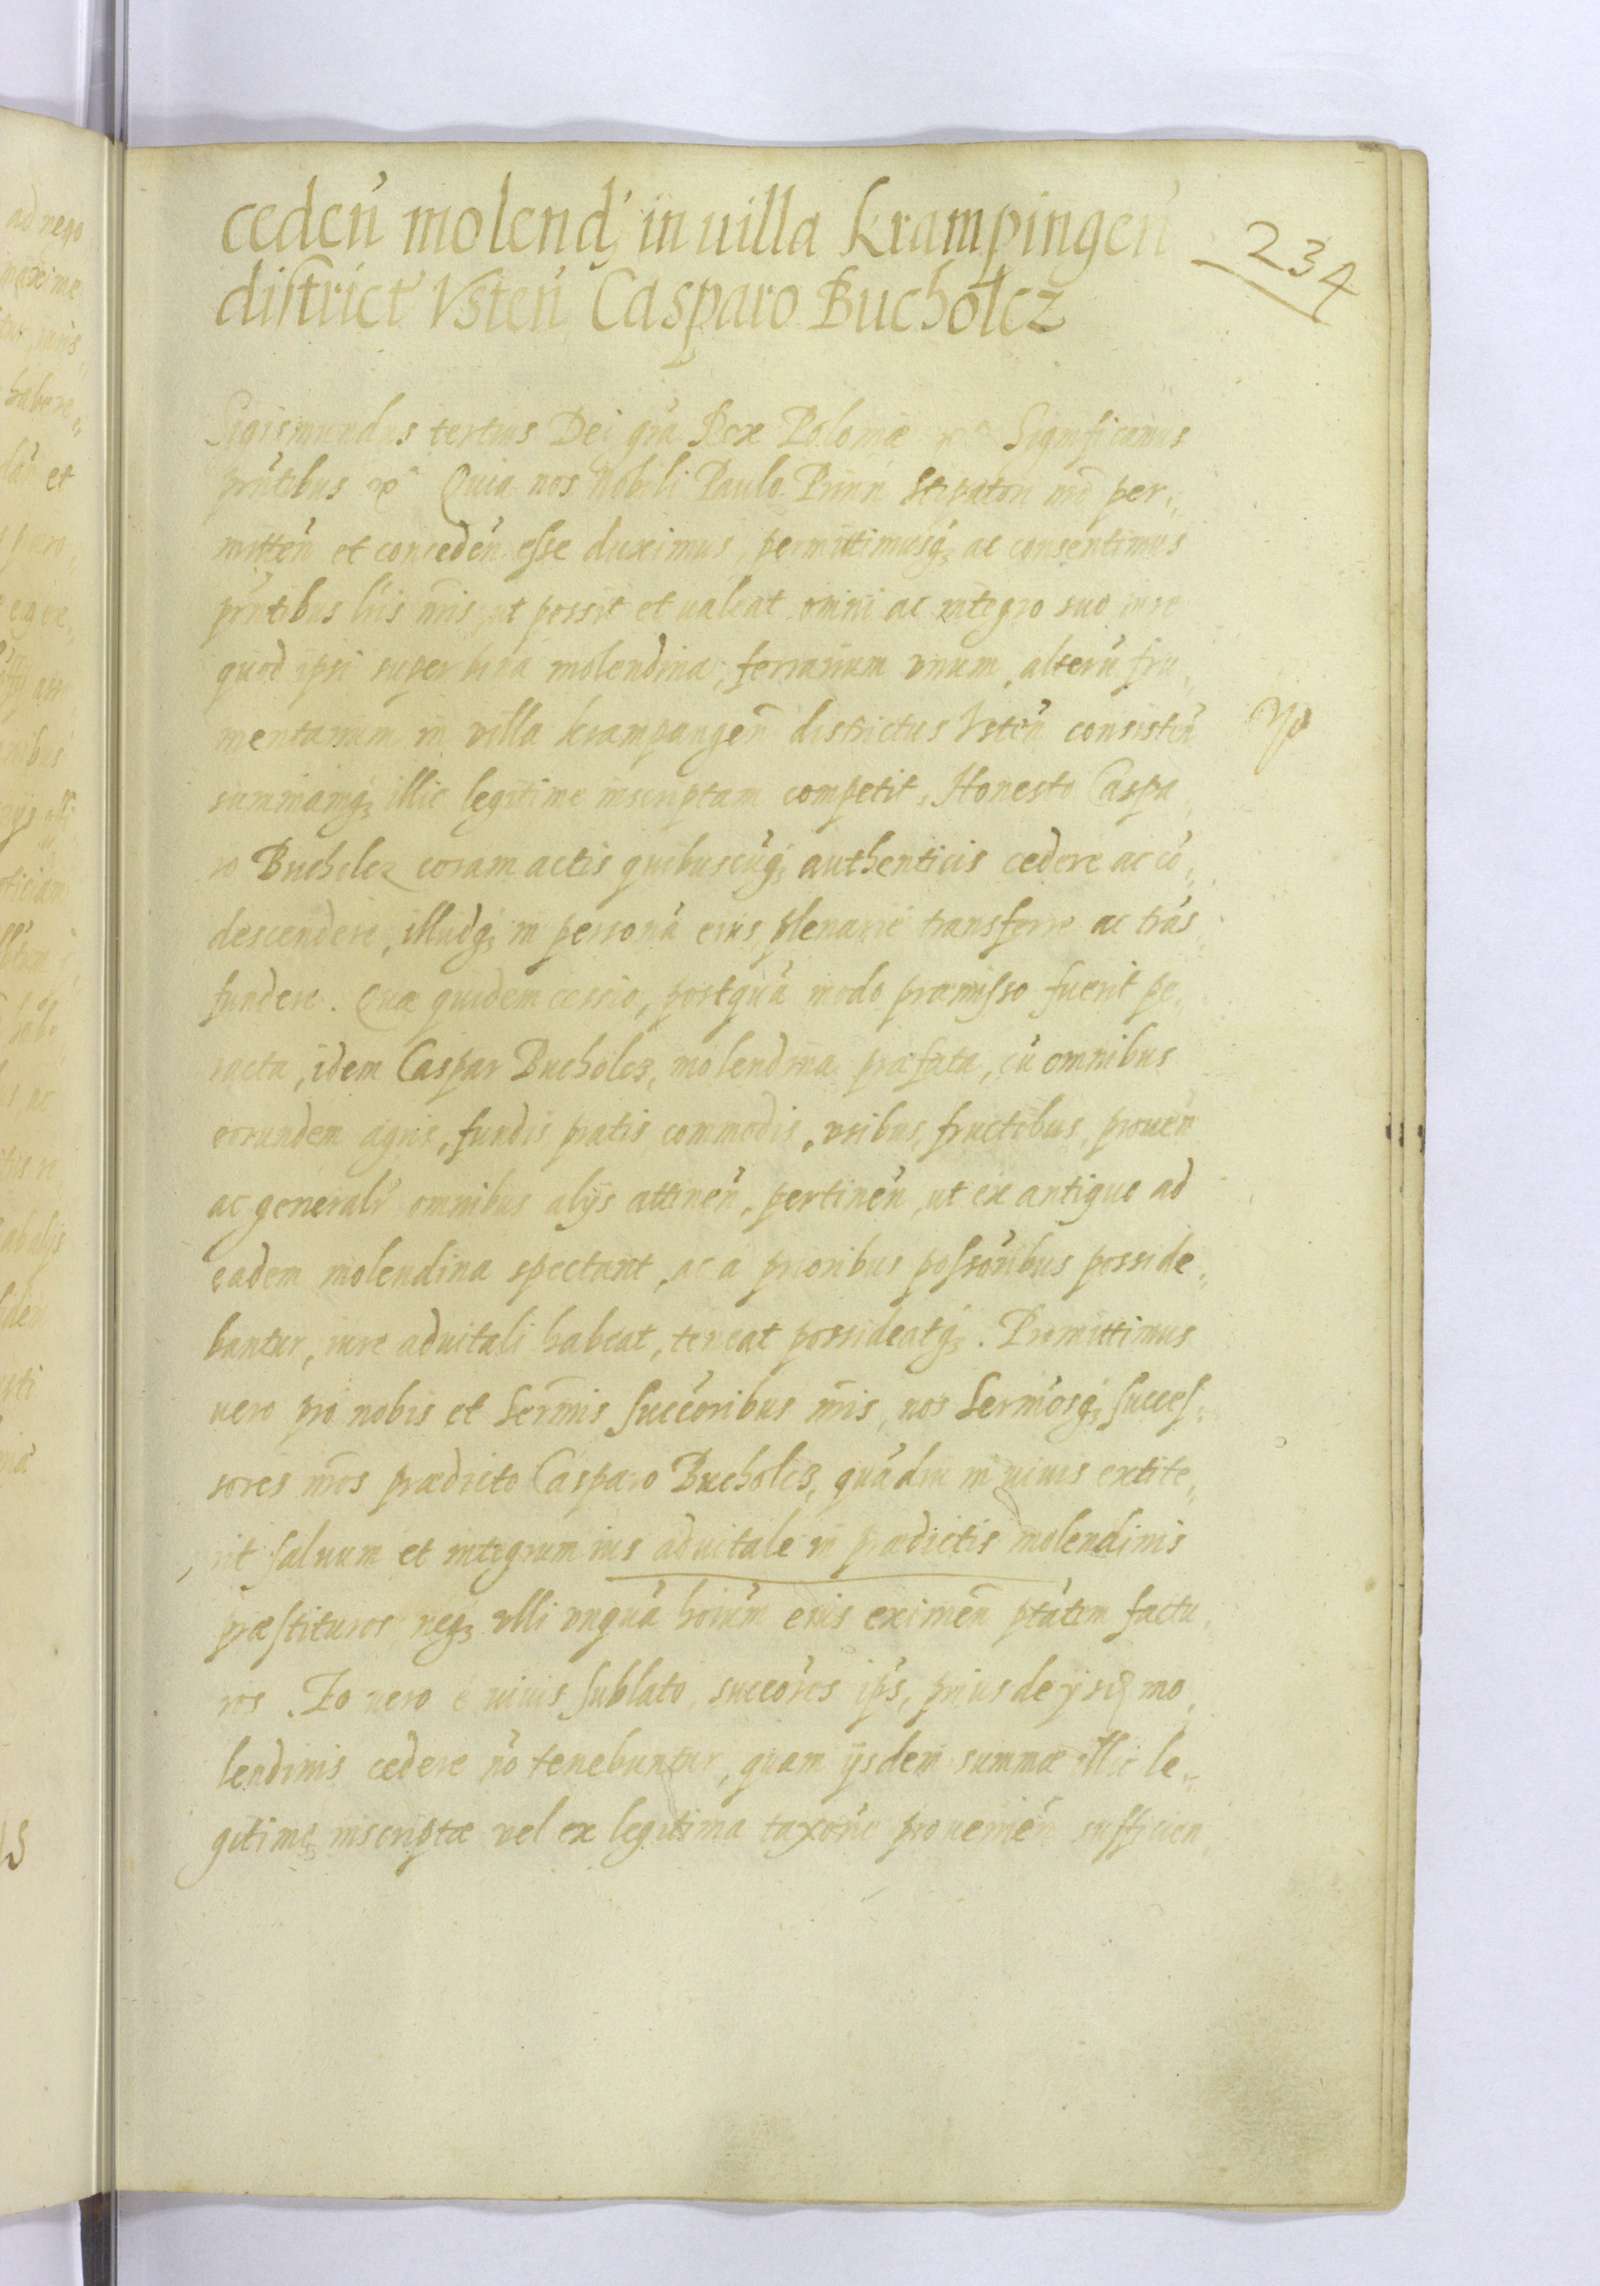 ceden̄ molend; in uilla Krampingen̄
district᾽ Vsten̄ Casparo Bucholcz
234
Sigismundus tertius Dei gr̄a Rex Poloniæ Significamus
pr̄ntibus Quia nos Nobili Paulo Stipatori nr̄o per„
mitten̄ et conceden̄ esse duximus, permittimusq; ac consentimus
pr̄ntibus lr̄is nr̄is, ut possit et ualeat omni ac integro suo iure
quod ipsi super bina molendina, ferrarium vnum, alterū fru„
mentarium in villa krampangen̄ districtus Vstēn consisten̄
summamq; illic legitime inscriptam competit, Honesto Caspa
ro Bucholcz coram actis quibuscūq; authenticis cedere ac cō„
descendere, illudq; in personā eius plenarie transferre ac trās„
fundere. Quæ quidem cessio, postquā modo præmisso fuerit pe„
racta, idem Caspar Bucholcz, molendina præfata, cū omnibus
eorundem agris, fundis pratis commodis, vsibus, fructibus, prouen̄
ac generalr̄ omnibus alijs attinen̄, pertinen̄, ut ex antiquo ad
eadem molendina spectant, ac a prioribus possōribus posside„
bantur, iure aduitali habeat, teneat possideatq;. Promittimus
uero pro nobis et Sermis succōribus nr̄is, nos Sermosq; succes„
sores nr̄os prædicto Casparo Bucholcz, quādiu in uiuis extite„
rit saluum et integrum ius aduitale in prædictis molendinis
præstituros neq; vlli vnquā horūm eius eximen̄ ptātem factu„
ros. Eo uero è uiuis sublato, succōres ips̄, prius de ijsdē mo„
lendinis cedere nō tenebuntur, quam ijsdem summæ illic le„
gitime inscriptæ vel ex legitima taxōne prouenien̄ sufficien